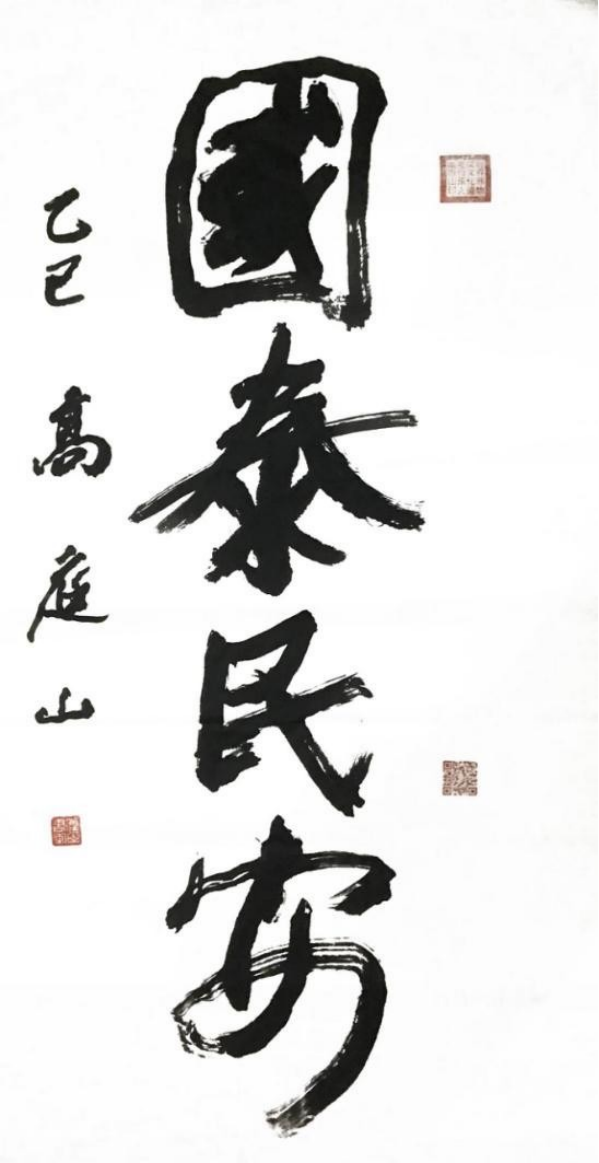 國泰民安
乙巳 高庭山